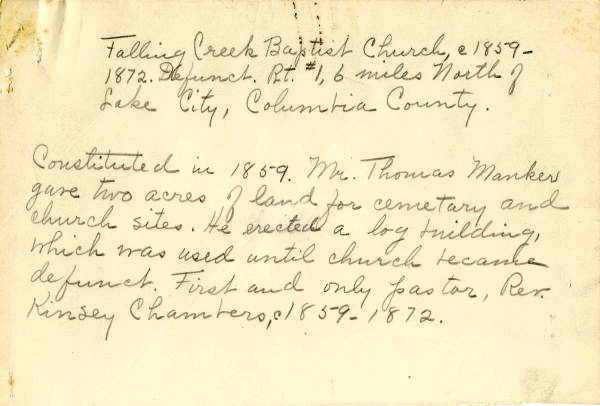 Falling Creek Baptist Church, c1859-
1872. Defunct. Rt. #1, 6 miles North of
Lake City, Columbia County.
Constituted in 1859. Mr. Thomas Manker
gave two acres of land for cemetary and
church sites. He erected a log building,
which was used until church became
defunct. First and only pastor, Rev.
Kinsey Chambers, c1859-1872.